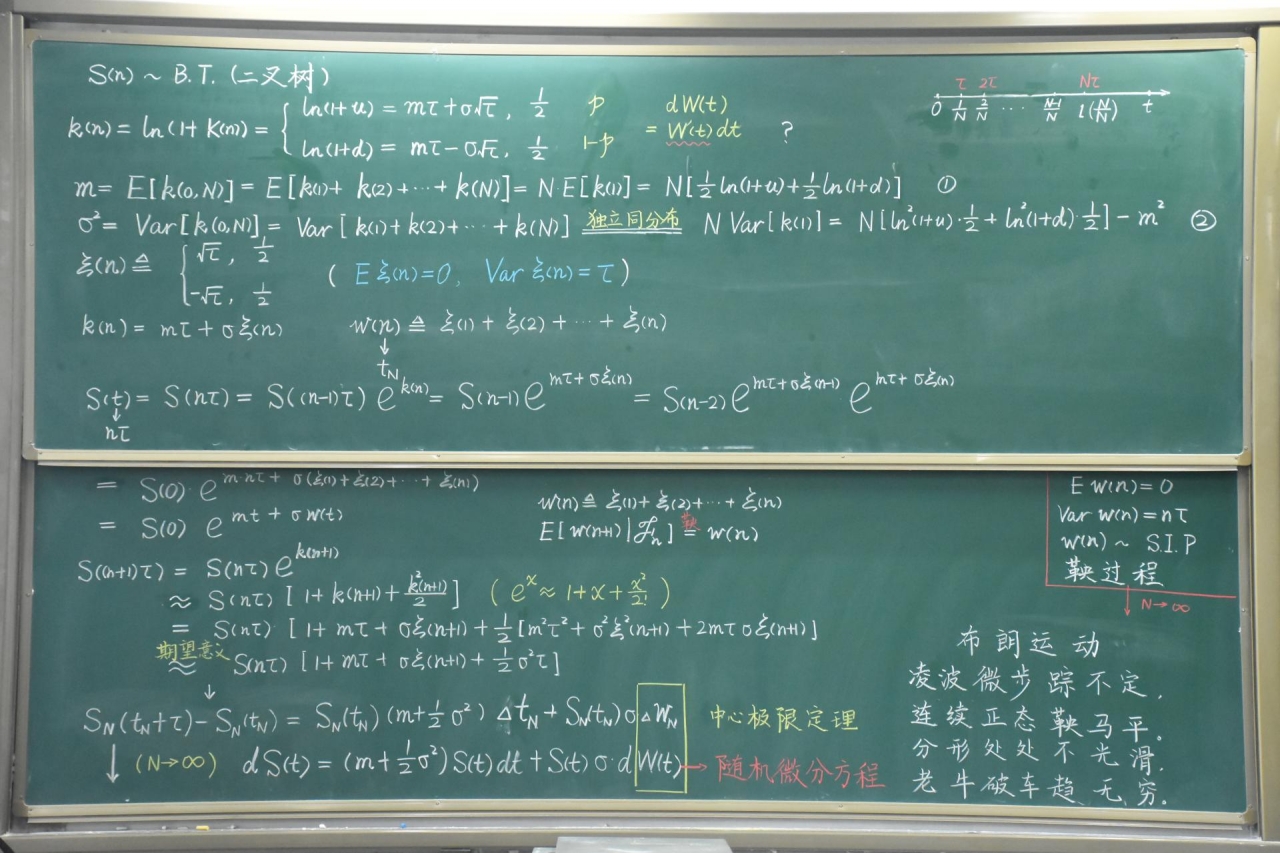 S(n) ~ B.T. (二叉树)
τ 2τ Nτ
0 1/N 2/N ⋯ N-1/N 1(N/N) t
k(n) = ln(1+K(n)) = { ln(1+u) = mτ+σ√τ, 1/2 p
ln(1+d) = mτ-σ√τ, 1/2 1-p
dW(t)
= W'(t)dt ?
m = E[k(0,N)] = E[k(1)+k(2)+⋯+k(N)] = N·E[k(1)] = N[1/2 ln(1+u)+1/2 ln(1+d)] ①
σ² = Var[k(0,N)] = Var[k(1)+k(2)+⋯+k(N)] 独立同分布 N Var[k(1)] = N[ln²(1+u)·1/2 + ln²(1+d)·1/2] - m² ②
ξ(n) ≜ { √τ, 1/2
-√τ, 1/2
(Eξ(n)=0, Var ξ(n)=τ)
k(n) = mτ+σξ(n) w(n) ≜ ξ(1)+ξ(2)+⋯+ξ(n)
↓
t_N
S(t) = S(nτ) = S((n-1)τ) e^{k(n)} = S(n-1) e^{mτ+σξ(n)} = S(n-2) e^{mτ+σξ(n-1)} e^{mτ+σξ(n)}
↓
nτ
= S(0)·e^{m·nτ+σ(ξ(1)+ξ(2)+⋯+ξ(n))}
= S(0) e^{mt+σw(t)}
w(n) ≜ ξ(1)+ξ(2)+⋯+ξ(n)
E[w(n+1)|ℱ_n] 鞅= w(n)
E w(n)=0
Var w(n)=nτ
w(n) ~ S.I.P
鞅过程
↓ N→∞
S((n+1)τ) = S(nτ) e^{k(n+1)}
≈ S(nτ) [1+k(n+1)+k²(n+1)/2] (e^x≈1+x+x²/2!)
= S(nτ) [1+mτ+σξ(n+1)+1/2[m²τ²+σ²ξ²(n+1)+2mτσξ(n+1)]
期望意义
≈ S(nτ) [1+mτ+σξ(n+1)+1/2σ²τ]
↓
S_N(t_N+τ)-S_N(t_N) = S_N(t_N)(m+1/2σ²)Δt_N+S_N(t_N)σΔW_N 中心极限定理
↓ (N→∞) dS(t) = (m+1/2σ²)S(t)dt+S(t)σ·dW(t) → 随机微分方程
布朗运动
凌波微步踪不定,
连续正态鞅马平。
分形处处不光滑,
老牛破车趋无穷。